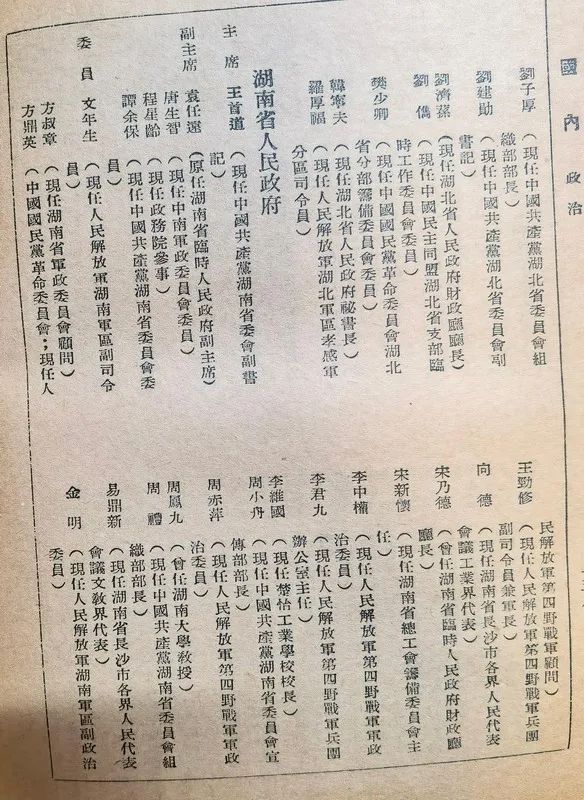 國內政治
劉子厚(現任中國共產黨湖北省委員會組
織部部長)
劉建勛(現任中國共產黨湖北省委員會副
書記)
劉濟蓀(現任湖北省人民政府財政廳廳長)
劉儁(現任中國民主同盟湖北省支部臨
時工作委員會委員)
樊少卿(現任中國國民黨革命委員會湖北
省分部籌備委員會委員)
韓寧夫(現任湖北省人民政府秘書長)
羅厚福(現任人民解放軍湖北軍區孝感軍
分區司令員)
湖南省人民政府
主席 王首道(現任中國共產黨湖南省委會副書
記)
副主席 袁任遠(原任湖南省臨時人民政府副主席)
唐生智(現任中南軍政委員會委員)
程星齡(現任政務院參事)
譚余保(現任中國共產黨湖南省委員會委
員)
委員 文年生(現任人民解放軍湖南軍區副司令
員)
方叔章(現任湖南省軍政委員會顧問)
方鼎英(中國國民黨革命委員會;現任人
民解放軍第四野戰軍顧問)
王勁修(現任人民解放軍第四野戰軍兵團
副司令員兼軍長)
向德(現任湖南省長沙市各界人民代表
會議工業界代表)
宋乃德(曾任湖南省臨時人民政府財政廳
廳長)
宋新懷(現任湖南省總工會籌備委員會主
任)
李中權(現任人民解放軍第四野戰軍軍政
治委員)
李君九(現任人民解放軍第四野戰軍兵團
辦公室主任)
李維國(現任楚怡工業學校校長)
周小舟(現任中國共產黨湖南省委員會宣
傳部部長)
周赤萍(現任人民解放軍第四野戰軍軍政
治委員)
周鳳九(曾任湖南大學教授)
周禮(現任中國共產黨湖南省委員會組
織部部長)
易鼎新(現任湖南省長沙市各界人民代表
會議文教界代表)
金明(現任人民解放軍湖南軍區副政治
委員)